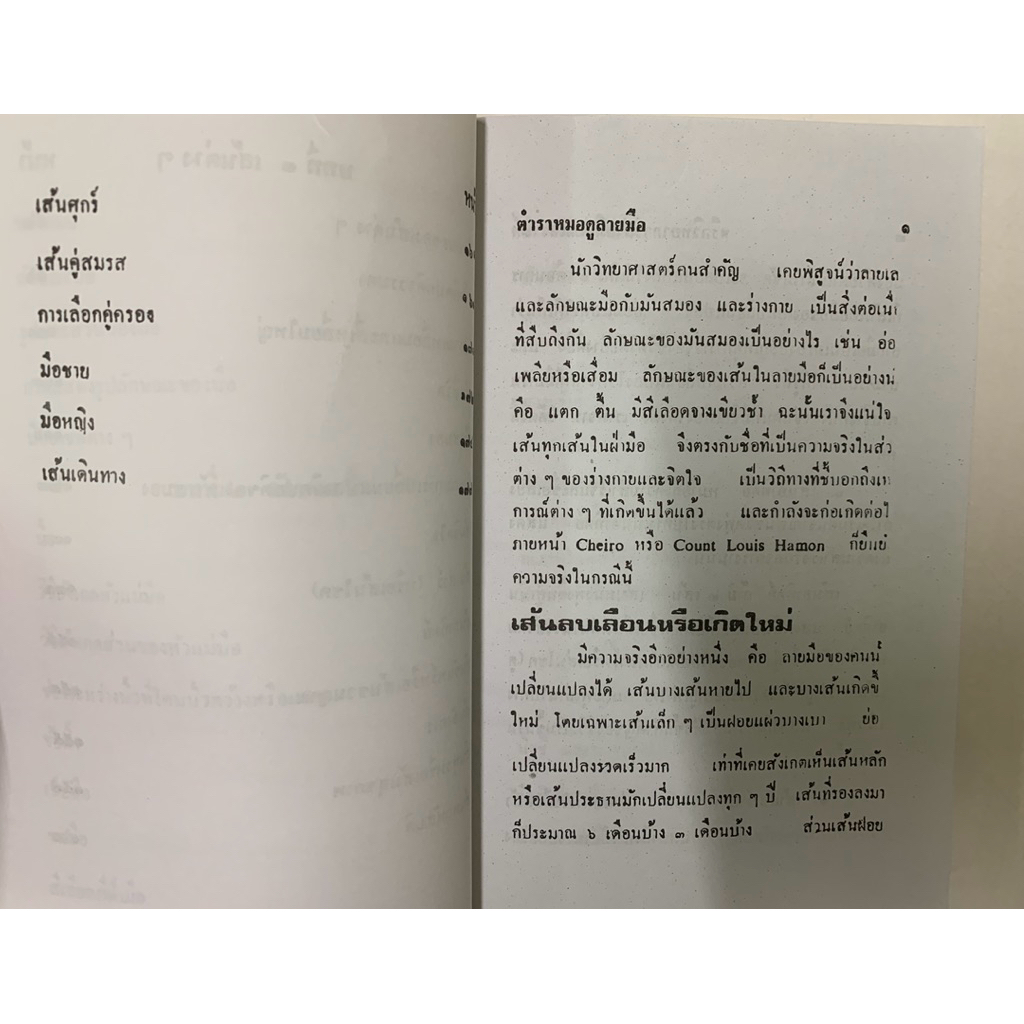 เส้นศุกร์
เส้นคู่สมรส
การเลือกคู่ครอง
มือชาย
มือหญิง
เส้นเดินทาง
ตำราหมอดูลายมือ ๑
นักวิทยาศาสตร์คนสำคัญ เคยพิสูจน์ว่าลายเส
และลักษณะมือกับมันสมอง และร่างกาย เป็นสิ่งต่อเนื่
ที่สืบถึงกัน ลักษณะของมันสมองเป็นอย่างไร เช่น อ่อ
เพลียหรือเสื่อม ลักษณะของเส้นในลายมือก็เป็นอย่างนั
คือ แตก ตื้น มีสีเลือดจางเขียวช้ำ ฉะนั้นเราจึงแน่ใจ
เส้นทุกเส้นในฝ่ามือ จึงตรงกับชื่อที่เป็นความจริงในส่ว
ต่าง ๆ ของร่างกายและจิตใจ เป็นวิถีทางที่ชี้บอกถึงเห
การณ์ต่าง ๆ ที่เกิดขึ้นได้แล้ว และกำลังจะก่อเกิดต่อไ
ภายหน้า Cheiro หรือ Count Louis Hamon ก็ยืนยั
ความจริงในกรณีนี้
เส้นลบเลือนหรือเกิดใหม่
มีความจริงอีกอย่างหนึ่ง คือ ลายมือของคนนั้
เปลี่ยนแปลงได้ เส้นบางเส้นหายไป และบางเส้นเกิดขึ้
ใหม่ โดยเฉพาะเส้นเล็ก ๆ เป็นฝอยแผ่วบางเบา ย่อ
เปลี่ยนแปลงรวดเร็วมาก เท่าที่เคยสังเกตเห็นเส้นหลัก
หรือเส้นประธานมักเปลี่ยนแปลงทุก ๆ ปี เส้นที่รองลงมา
ก็ประมาณ ๖ เดือนบ้าง ๓ เดือนบ้าง ส่วนเส้นฝอย